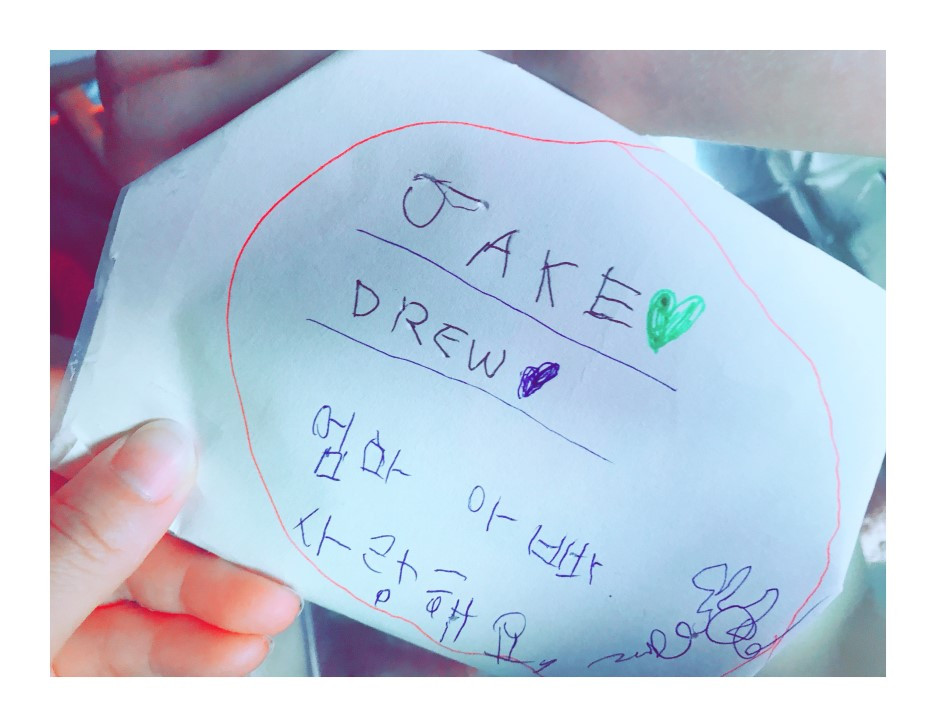 JAKE
DREW
엄마 아빠
사랑해요